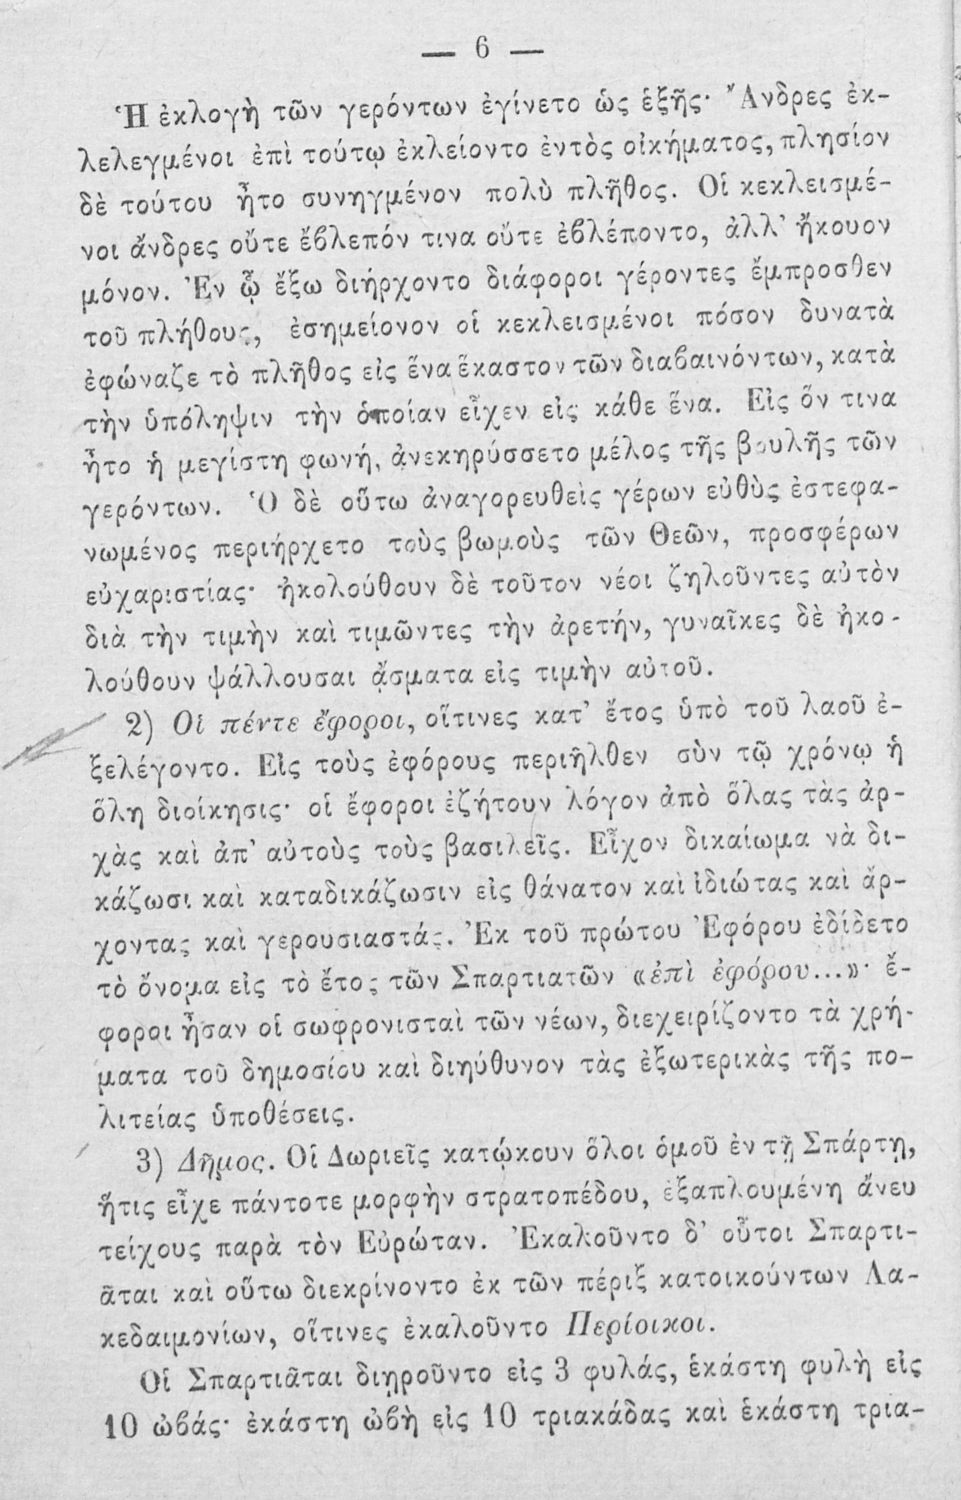 — 6 —
Ἡ ἐκλογὴ τῶν γερόντων ἐγίνετο ὡς ἑξῆς· Ἄνδρες ἐκ-
λελεγμένοι ἐπὶ τούτῳ ἐκλείοντο ἐντὸς οἰκήματος, πλησίον
δὲ τούτου ἦτο συνηγμένον πολὺ πλῆθος. Οἱ κεκλεισμέ-
νοι ἄνδρες οὔτε ἔβλεπόν τινα οὔτε ἐβλέποντο, ἀλλ' ἤκουον
μόνον. Ἐν ᾧ ἔξω διήρχοντο διάφοροι γέροντες ἔμπροσθεν
τοῦ πλήθους, ἐσημείονον οἱ κεκλεισμένοι πόσον δυνατὰ
ἐφώναζε τὸ πλῆθος εἰς ἕνα ἕκαστον τῶν διαβαινόντων, κατὰ
τὴν ὑπόληψιν τὴν ὁποίαν εἶχεν εἰς κάθε ἕνα. Εἰς ὅν τινα
ἦτο ἡ μεγίστη φωνή, ἀνεκηρύσσετο μέλος τῆς βουλῆς τῶν
γερόντων. Ὁ δὲ οὕτω ἀναγορευθεὶς γέρων εὐθὺς ἐστεφα-
νωμένος περιήρχετο τοὺς βωμοὺς τῶν Θεῶν, προσφέρων
εὐχαριστίας· ἠκολούθουν δὲ τοῦτον νέοι ζηλοῦντες αὐτὸν
διὰ τὴν τιμὴν καὶ τιμῶντες τὴν ἀρετήν, γυναῖκες δὲ ἠκο-
λούθουν ψάλλουσαι ᾄσματα εἰς τιμὴν αὐτοῦ.
2) Οἱ πέντε ἔφοροι, οἵτινες κατ' ἔτος ὑπὸ τοῦ λαοῦ ἐ-
ξελέγοντο. Εἰς τοὺς ἐφόρους περιῆλθεν σὺν τῷ χρόνῳ ἡ
ὅλη διοίκησις· οἱ ἔφοροι ἐζήτουν λόγον ἀπὸ ὅλας τὰς ἀρ-
χὰς καὶ ἀπ' αὐτοὺς τοὺς βασιλεῖς. Εἶχον δικαίωμα νὰ δι-
κάζωσι καὶ καταδικάζωσιν εἰς θάνατον καὶ ἰδιώτας καὶ ἄρ-
χοντας καὶ γερουσιαστάς. Ἐκ τοῦ πρώτου Ἐφόρου ἐδίδετο
τὸ ὄνομα εἰς τὸ ἔτος τῶν Σπαρτιατῶν «ἐπὶ ἐφόρου...»· ἔ-
φοροι ἦσαν οἱ σωφρονισταὶ τῶν νέων, διεχειρίζοντο τὰ χρή-
ματα τοῦ δημοσίου καὶ διηύθυνον τὰς ἐξωτερικὰς τῆς πο-
λιτείας ὑποθέσεις.
3) Δῆμος. Οἱ Δωριεῖς κατῴκουν ὅλοι ὁμοῦ ἐν τῇ Σπάρτῃ,
ἥτις εἶχε πάντοτε μορφὴν στρατοπέδου, ἐξαπλουμένη ἄνευ
τείχους παρὰ τὸν Εὐρώταν. Ἐκαλοῦντο δ' οὗτοι Σπαρτι-
ᾶται καὶ οὕτω διεκρίνοντο ἐκ τῶν πέριξ κατοικούντων Λα-
κεδαιμονίων, οἵτινες ἐκαλοῦντο Περίοικοι.
Οἱ Σπαρτιᾶται διῃροῦντο εἰς 3 φυλάς, ἑκάστη φυλὴ εἰς
10 ὠβάς· ἑκάστη ὠβὴ εἰς 10 τριακάδας καὶ ἑκάστη τρια-